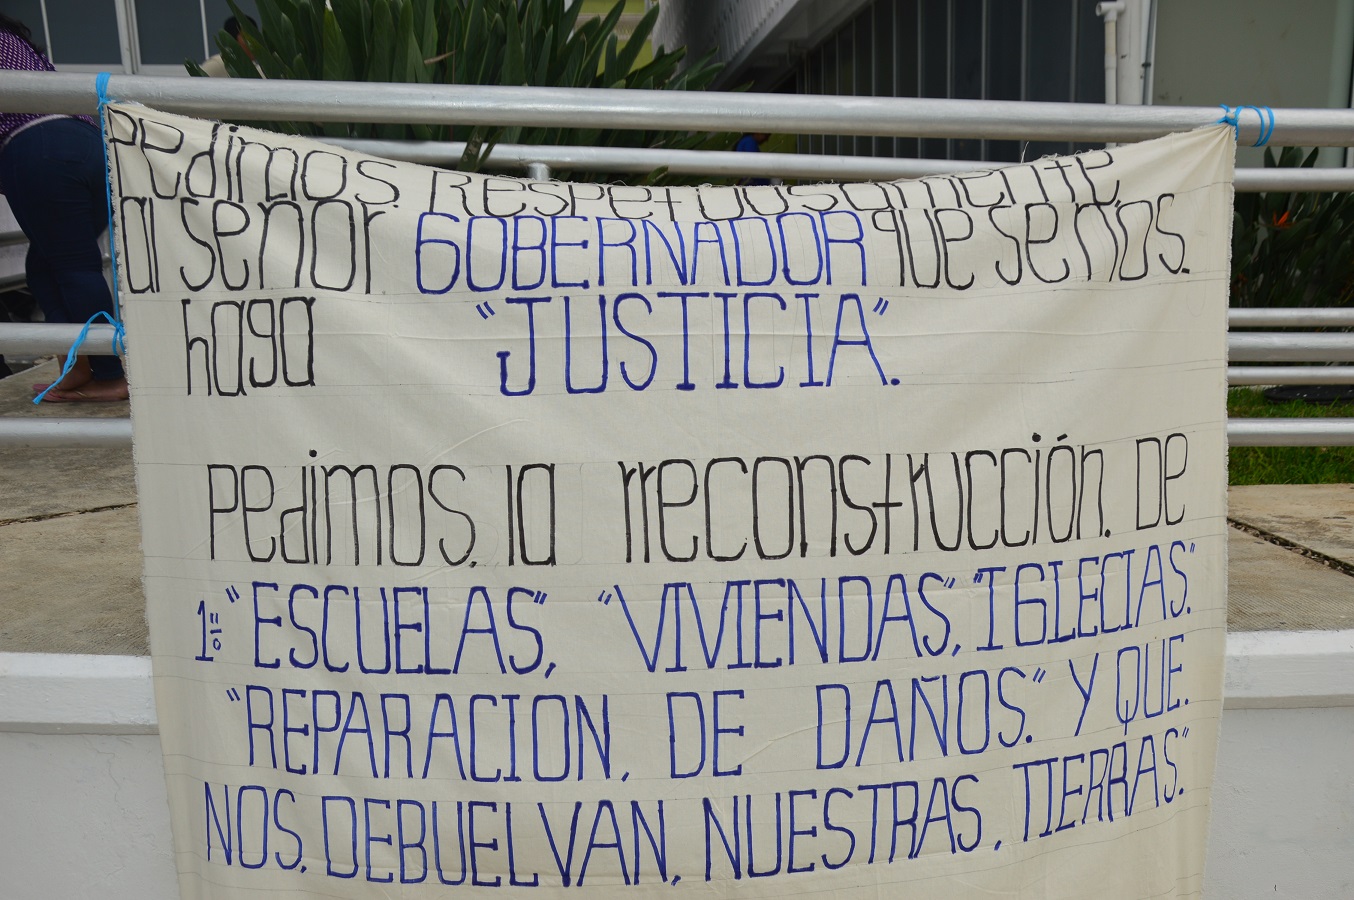 Pedimos. Respetuosamente
al señor. GOBERNADOR que se nos.
haga "JUSTICIA".
Pedimos. la rreconstrucción. DE
1º "ESCUELAS", "VIVIENDAS", "IGLECIAS".
"REPARACION, DE DAÑOS." Y QUE.
NOS. DEBUELVAN, NUESTRAS, TIERRAS."